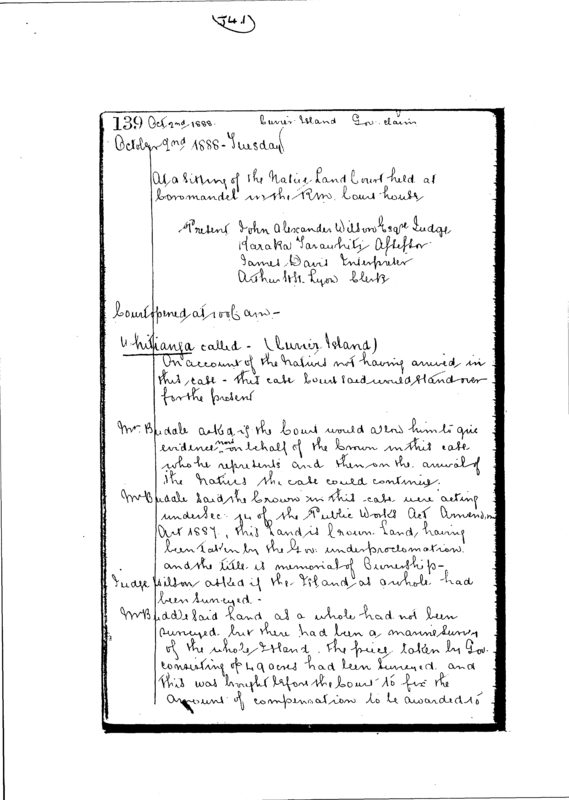 139 Oct 2nd 1888. Cuvier Island Gov. claim
October 2nd 1888 - Tuesday
At a Sitting of the Native Land Court held at
Coromandel in the R.M. Court house
Present John Alexander Wilson Esqre Judge
Haraka Tarawhiti Assessor
James Davis Interpreter
Arthur H. Lyon Clerk
Court opened at 10 am -
Whitianga called - (Cuvier Island)
On account of the Natives not having arrived in
this case - this case Court said would stand over
for the present
Mr Buddle asked if the Court would allow him to give
evidence now on behalf of the Crown in this case
who he represents and then on the arrival of
the Natives the case could continue.
Mr Buddle said the Crown in this case were acting
under Sec: 14 of the Public Works Act Amend.
Act 1887, this Land is Crown Land, having
been taken by the Gov: under proclamation.
and the title is memorial of Ownership -
Judge Wilson asked if the Island as a whole had
been Surveyed -
Mr Buddle said Land as a whole had not been
surveyed. but there had been a marine Survey
of the whole Island. the piece taken by Gov.
consisting of 49 acres had been Surveyed. and
this was bought before the Court to fix the
amount of compensation to be awarded to